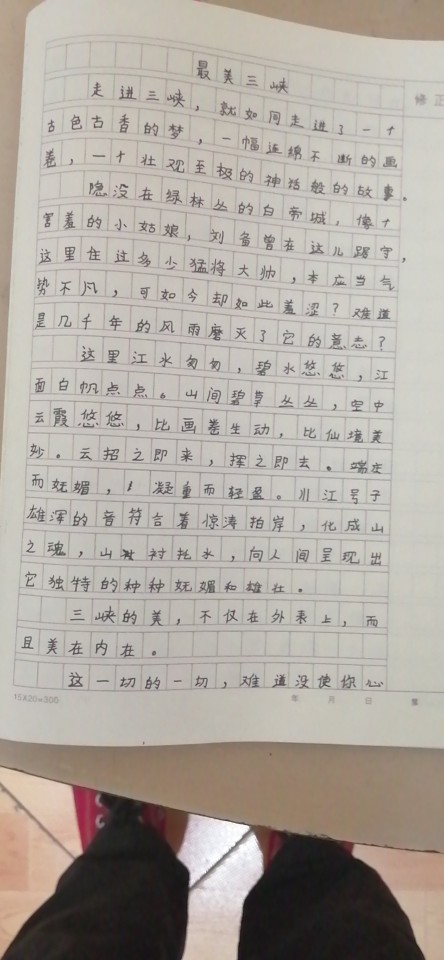 最美三峡
修正
走进三峡，就如同走进了一个
古色古香的梦，一幅连绵不断的画
卷，一个壮观至极的神话般的故事。
隐没在绿林丛的白帝城，像个
害羞的小姑娘，刘备曾在这儿踞守，
这里住过多少猛将大帅，本应当气
势不凡，可如今却如此羞涩？难道
是几千年的风雨磨灭了它的意志？
这里江水匆匆，碧水悠悠，江
面白帆点点。山间碧草丛丛，空中
云霞悠悠，比画卷生动，比仙境美
妙。云招之即来，挥之即去。端庄
而妩媚，凝重而轻盈。川江号子
雄浑的音符合着惊涛拍岸，化成山
之魂，山衬托水，向人间呈现出
它独特的种种妩媚和雄壮。
三峡的美，不仅在外表上，而
且美在内在。
这一切的一切，难道没使你心
15X20=300 年 月 日 第